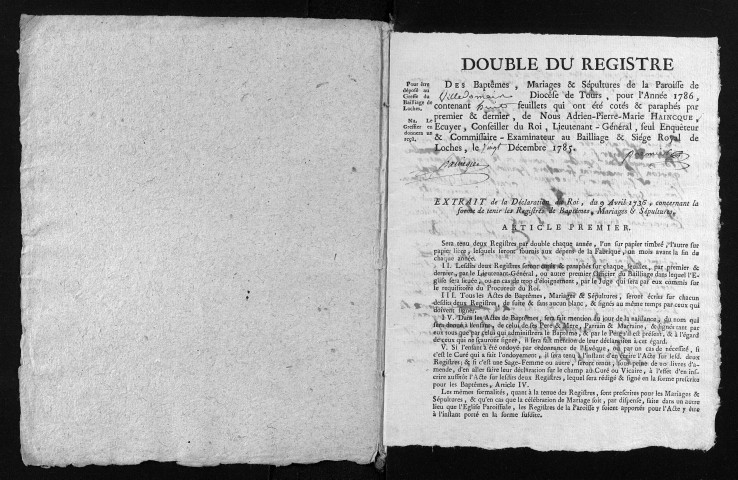 DOUBLE DU REGISTRE
Pour être
déposé au
Greffe du
Bailliage de
Loches.
Na. Le
Greffier en
donnera un
reçu.
DES Baptêmes, Mariages & Sépultures de la Paroisse de
Villedomain Diocèse de Tours, pour l'Année 1786,
contenant huit feuillets qui ont été cotés & paraphés par
premier & dernier, de Nous Adrien-Pierre-Marie HAINCQUE,
Ecuyer, Conseiller du Roi, Lieutenant-Général, seul Enquêteur
& Commissaire-Examinateur au Bailliage & Siége Royal de
Loches, le vingt Décembre 1785.
haincque
premier
EXTRAIT de la Déclaration du Roi, du 9 Avril 1736, concernant la
forme de tenir les Registres de Baptêmes, Mariages & Sépultures.
ARTICLE PREMIER.
Sera tenu deux Registres par double chaque année, l'un sur papier timbré, l'autre sur
papier libre, lesquels seront fournis aux dépens de la Fabrique, un mois avant la fin de
chaque année.
II. Lesdits deux Registres seront cotés & paraphés sur chaque feuillet, par premier &
dernier, par le Lieutenant-Général, ou autre premier Officier du Bailliage dans lequel l'E-
glise sera située, ou en cas de trop d'éloignement, par le Juge qui sera par eux commis sur
le requisitoire du Procureur du Roi.
III. Tous les Actes de Baptêmes, Mariages & Sépultures, seront écrits sur chacun
desdits deux Registres, de suite & sans aucun blanc, & signés au même temps par ceux qui
doivent signer.
IV. Dans les Actes de Baptêmes, sera fait mention du jour de la naissance, du nom qui
sera donné à l'enfant, de celui de ses Pere & Mere, Parrain & Marraine, & signés tant par
eux tous que par celui qui administrera le Baptême, & par le Pere s'il est présent, & à l'égard
de ceux qui ne sauront signer, il sera fait mention de leur déclaration à cet égard.
V. Si l'enfant a été ondoyé par ordonnance de l'Evêque, ou par un cas de nécessité, si
c'est le Curé qui a fait l'ondoyement, il sera tenu à l'instant d'en écrire l'Acte sur lesd. deux
Registres; & si c'est une Sage-Femme ou autre, seront tenus, sous peine de 10 livres d'a-
mende, d'en aller faire leur déclaration sur le champ au Curé ou Vicaire, à l'effet d'en ins-
crire aussitôt l'Acte sur lesdits deux Registres, lequel sera rédigé & signé en la forme prescrite
pour les Baptêmes, Article IV.
Les mêmes formalités, quant à la tenue des Registres, sont prescrites pour les Mariages &
Sépultures, & qu'en cas que la célébration de Mariage soit, par dispense, faite dans un autre
lieu que l'Eglise Paroissiale, les Registres de la Paroisse y soient apportés pour l'Acte y être
à l'instant porté en la forme susdite.